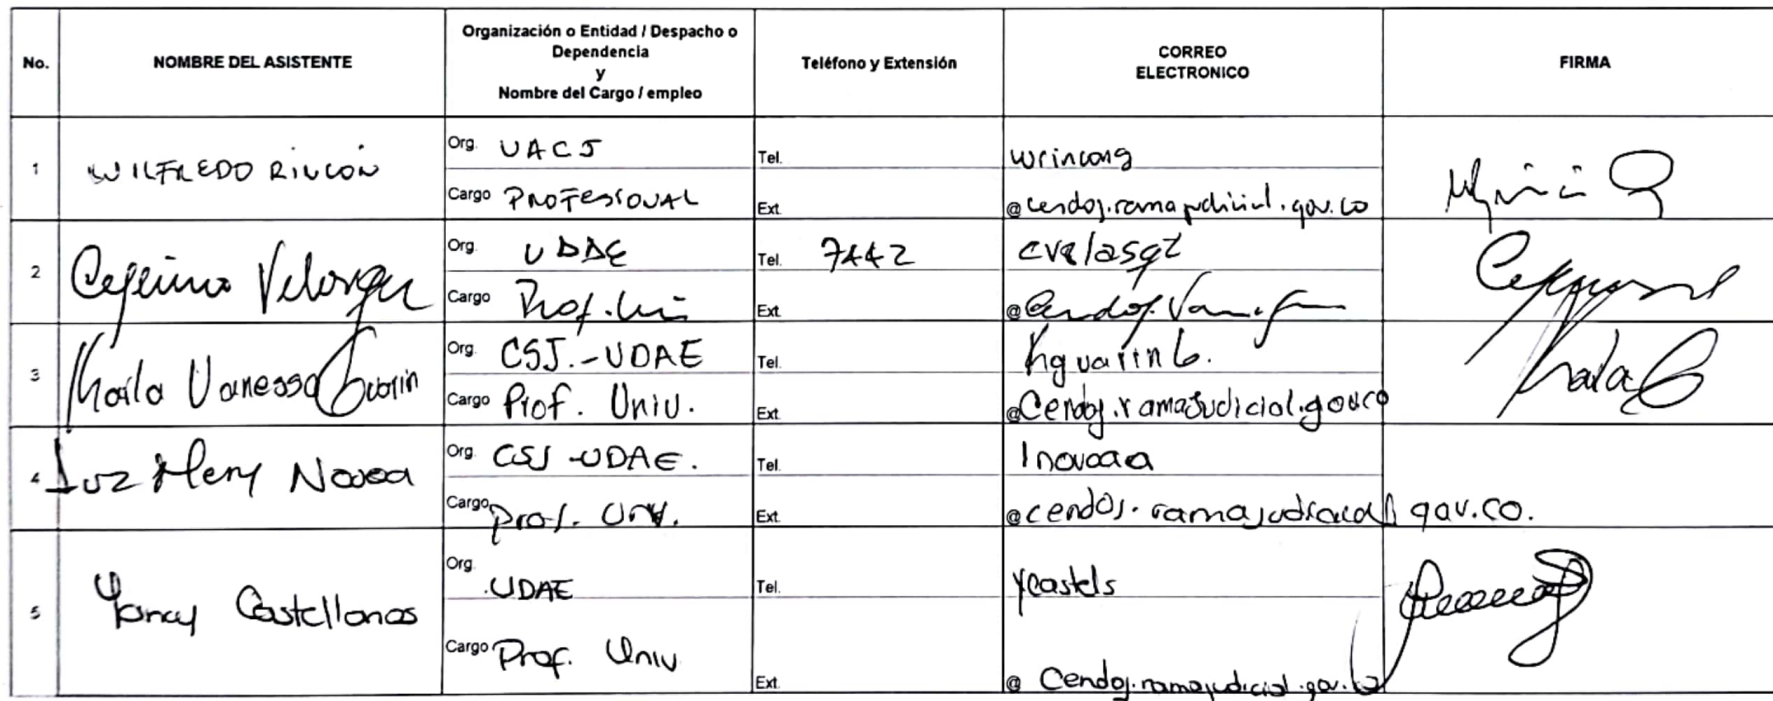 No.
NOMBRE DEL ASISTENTE
Organización o Entidad / Despacho o
Dependencia
y
Nombre del Cargo / empleo
Teléfono y Extensión
CORREO
ELECTRONICO
FIRMA
1
WILFREDO RINCÓN
Org. UACJ
Cargo PROFESIONAL
Tel.
Ext.
wrincong
@cendoj.ramajudicial.gov.co
2
Velasquez
Org. UDAE
Cargo Prof.
Tel. 7442
Ext.
cvelasqz
@Cendoj.
3
Karla Vanessa Guarin
Org. CSJ.-UDAE
Cargo Prof. Univ.
Tel.
Ext.
kguarinb.
@Cendoj.ramajudicial.gov.co
Karla G
4
Luz Mery Novoa
Org. CSJ -UDAE.
Cargo Prof. Univ.
Tel.
Ext.
lnovoaa
@cendoj.ramajudicial gov.co.
5
Yancy Castellanos
Org. UDAE
Cargo Prof. Univ
Tel.
Ext.
ycastels
@ Cendoj.ramajudicial.gov.co